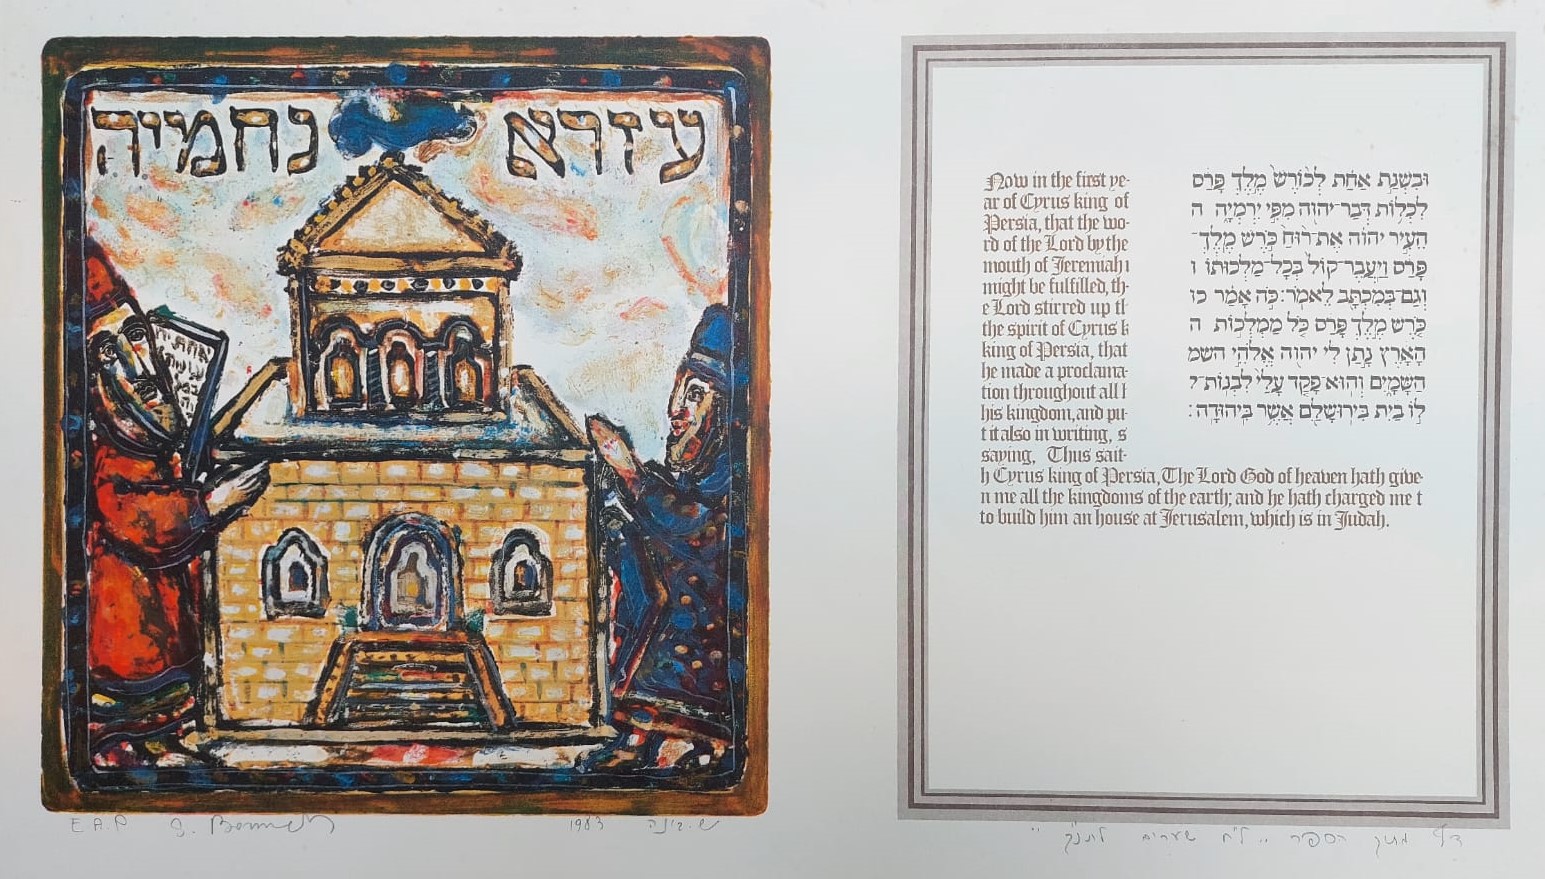 עזרא נחמיה
E A.P
1983
Now in the first ye-
ar of Cyrus king of
Persia, that the wo-
rd of the Lord by the
mouth of Jeremiah
might be fulfilled, th-
e Lord stirred up
the spirit of Cyrus k
king of Persia, that
he made a proclama-
tion throughout all
his kingdom, and pu-
t it also in writing, s
saying, Thus sait-
h Cyrus king of Persia, The Lord God of heaven hath give-
n me all the kingdoms of the earth; and he hath charged me t
to build him an house at Jerusalem, which is in Judah.
וּבִשְׁנַת אַחַת לְכוֹרֶשׁ מֶלֶךְ פָּרַס
לִכְלוֹת דְּבַר־יהוה מִפִּי יִרְמְיָה ה
הֵעִיר יהוה אֶת־רוּחַ כֹּרֶשׁ מֶלֶךְ־
פָּרַס וַיַּעֲבֶר־קוֹל בְּכָל־מַלְכוּתוֹ ו
וְגַם־בְּמִכְתָּב לֵאמֹר: כֹּה אָמַר כו
כֹּרֶשׁ מֶלֶךְ פָּרַס כֹּל מַמְלְכוֹת ה
הָאָרֶץ נָתַן לִי יהוה אֱלֹהֵי השמ
הַשָּׁמָיִם וְהוּא־פָקַד עָלַי לִבְנוֹת־ל
לוֹ בַיִת בִּירוּשָׁלִַם אֲשֶׁר בִּיהוּדָה:
דף מתוך הספר ,,ל"ח שערים לתנ"ך"